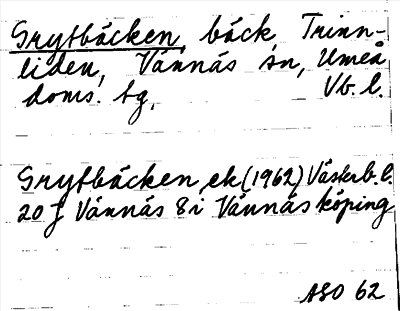 Grytbäcken, bäck, Trinn-
liden, Vännäs sn, Umeå
doms. tg, Vb. l.
Grytbäcken, ek (1962) Västerb. l.
20 J Vännäs 8 i Vännäs köping
ASO 62